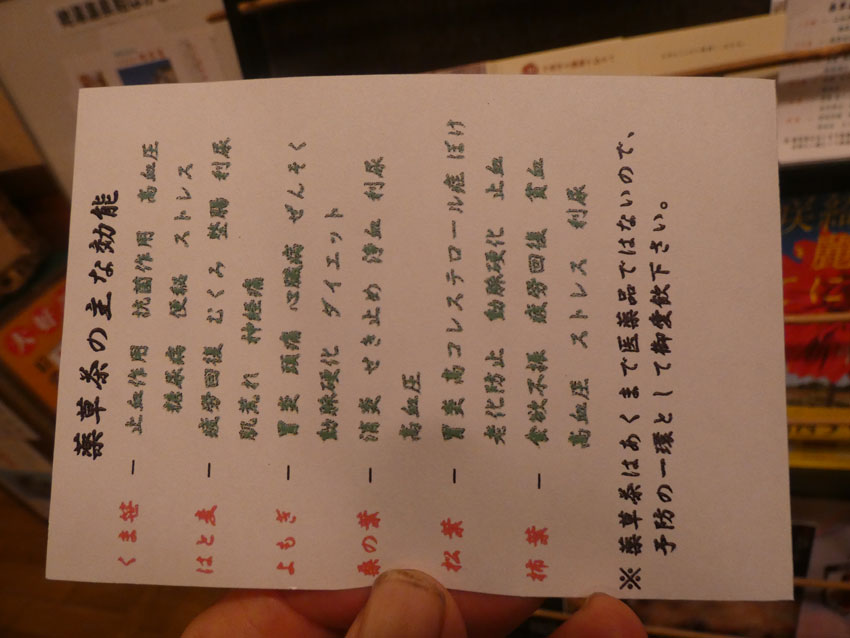 薬草茶の主な効能
くま笹 ー 止血作用 抗菌作用 高血圧
糖尿病 便秘 ストレス
はと麦 ー 疲労回復 むくみ 整腸 利尿
肌荒れ 神経痛
よもぎ ー 胃炎 頭痛 心臓病 ぜんそく
動脈硬化 ダイエット
桑の葉 ー 消炎 せき止め 浄血 利尿
高血圧
松葉 ー 胃炎 高コレステロール症 ぼけ
老化防止 動脈硬化 止血
柿葉 ー 食欲不振 疲労回復 貧血
高血圧 ストレス 利尿
※薬草茶はあくまで医薬品ではないので、
予防の一環として御愛飲下さい。